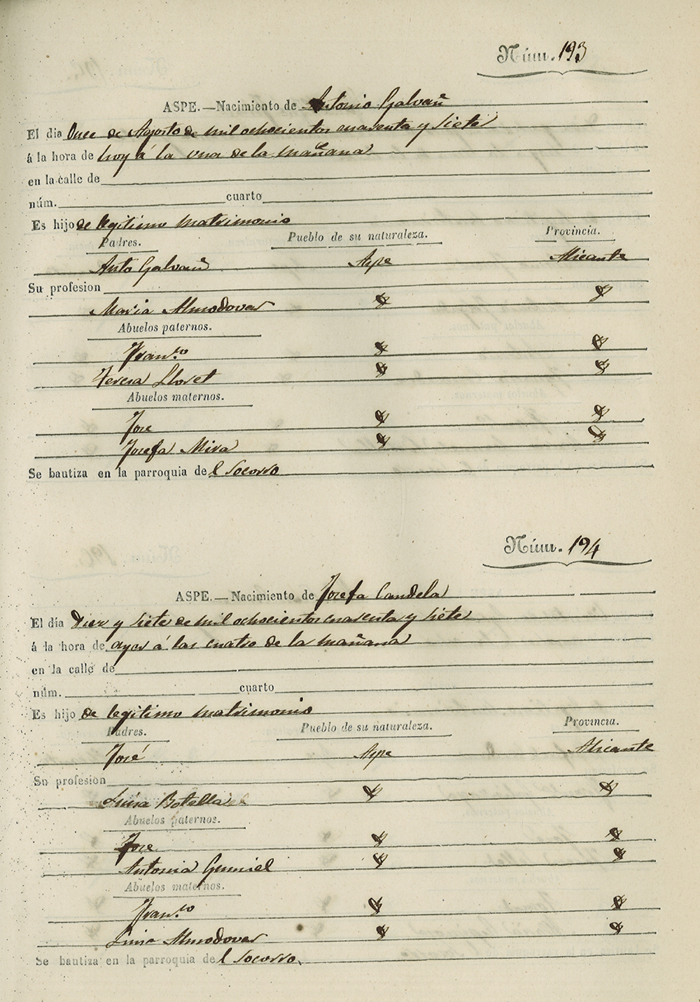 Núm. 193
ASPE.—Nacimiento de Antonio Galvañ
El día Once de Agosto de mil ochocientos cuarenta y siete
á la hora de hoy á la una de la mañana
en la calle de
núm. cuarto
Es hijo de legitimo matrimonio
Padres. Pueblo de su naturaleza. Provincia.
Anto Galvañ Aspe Alicante
Su profesion
Maria Almodovar
Abuelos paternos.
Fran.co
Teresa Lloret
Abuelos maternos.
Jose
Josefa Mira
Se bautiza en la parroquia del Socorro
Núm. 194
ASPE.—Nacimiento de Josefa Candela
El día Diez y siete de mil ochocientos cuarenta y siete
á la hora de ayer á las cuatro de la mañana
en la calle de
núm. cuarto
Es hijo de legitimo matrimonio
Padres. Pueblo de su naturaleza. Provincia.
José Aspe Alicante
Su profesion
Luisa Botella
Abuelos paternos.
Jose
Antonia Gumiel
Abuelos maternos.
Fran.co
Luisa Almodovar
Se bautiza en la parroquia del Socorro